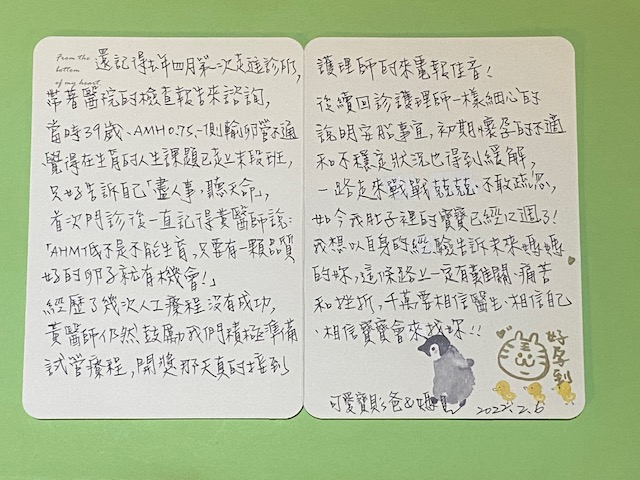 From the
bottom
of my heart
還記得去年四月第一次走進診所,
帶著醫院的檢查報告來諮詢,
當時39歲、AMH0.75、一側輸卵管不通
覺得在生育的人生課題已走上末段班,
只好告訴自己「盡人事,聽天命」,
首次門診後一直記得黃醫師說:
「AHM低不是不能生育,只要有一顆品質
好的卵子就有機會!」
經歷了幾次人工療程沒有成功,
黃醫師仍然鼓勵我們積極準備
試管療程,開獎那天真的接到
護理師的來電報佳音!
後續回診護理師一樣細心的
說明安胎事宜,初期懷孕的不適
和不穩定狀況也得到緩解,
一路走來戰戰兢兢不敢疏忽,
如今我肚子裡的寶寶已經12週了!
我想以自身的經驗告訴未來媽媽
的妳,這條路上一定有難關、痛苦
和挫折,千萬要相信醫生、相信自己
、相信寶寶會來找妳!!
好孕到
可愛寶貝爸&媽
2022.2.6